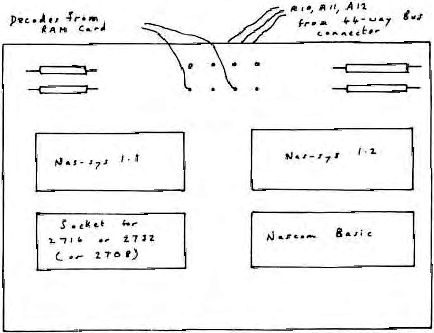 Decodes from
RAM Card
A10, A11, A12
from 44-way Bus
connector
Nas-sys 1.1
Nas-sys 1.2
Socket for
2716 or 2732
(or 2708)
Nascom Basic